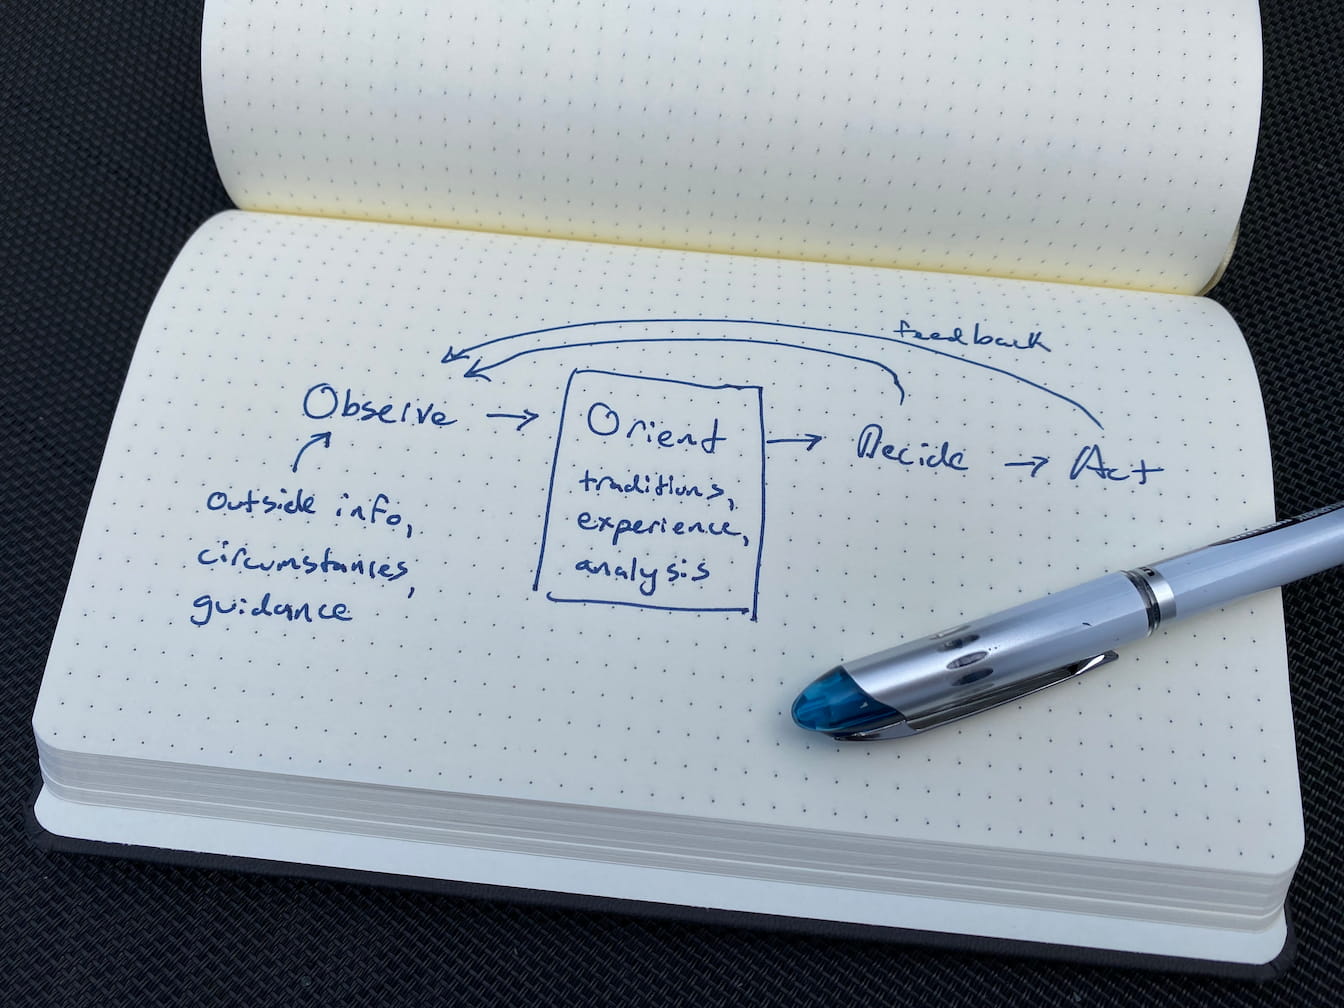 feedback
Observe → Orient → Decide → Act
traditions,
experience,
analysis
outside info,
circumstances,
guidance